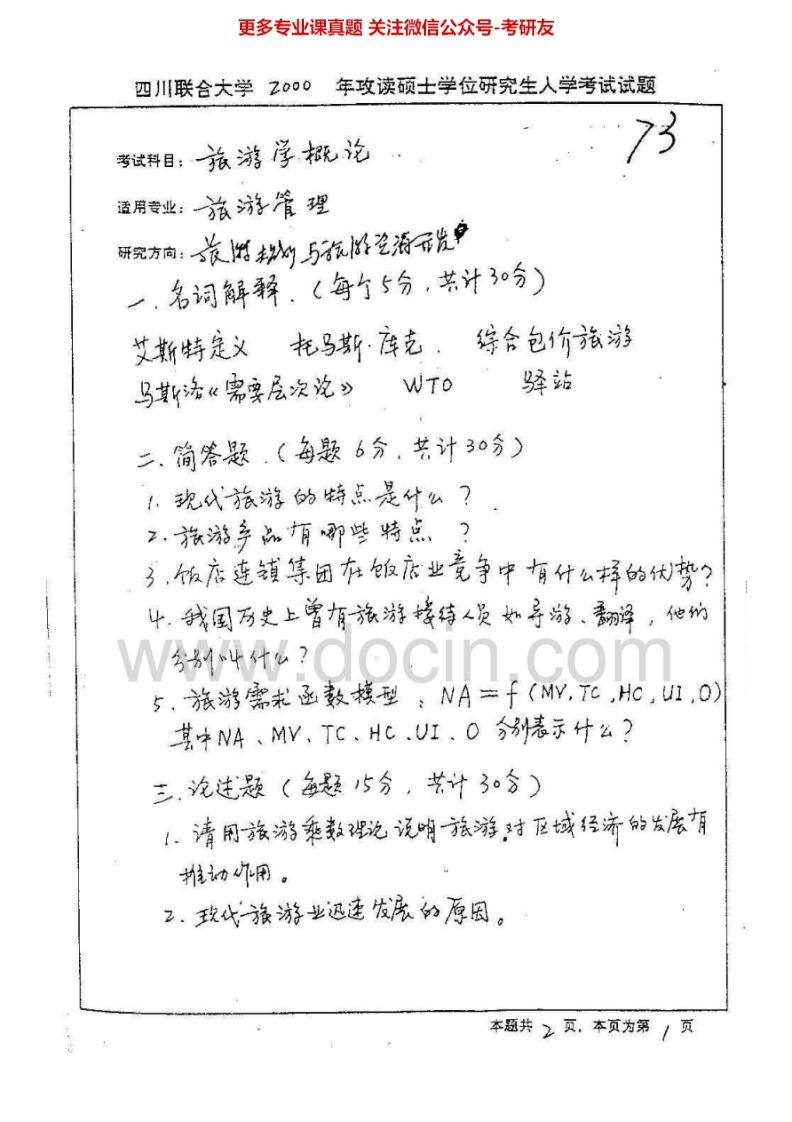 更多专业课真题 关注微信公众号-考研友
四川联合大学 2000 年攻读硕士学位研究生入学考试试题
73
考试科目：旅游学概论
适用专业：旅游管理
研究方向：旅游规划与旅游资源开发
一．名词解释．（每个5分，共计30分）
艾斯特定义 托马斯·库克． 综合包价旅游
马斯洛《需要层次论》 WTO 驿站
二．简答题．（每题6分，共计30分）
1．现代旅游的特点是什么？
2．旅游产品有哪些特点？
3．饭店连锁集团在饭店业竞争中有什么样的优势？
4．我国历史上曾有旅游接待人员如导游、翻译，他们
分别叫什么？
www.docin.com
5．旅游需求函数模型：NA＝f（MV，TC，HC，UI，O）
其中NA、MV、TC、HC、UI、O 分别表示什么？
三．论述题（每题15分，共计30分）
1．请用旅游乘数理论说明旅游对区域经济的发展有
推动作用。
2．现代旅游业迅速发展的原因。
本题共 2 页，本页为第 1 页